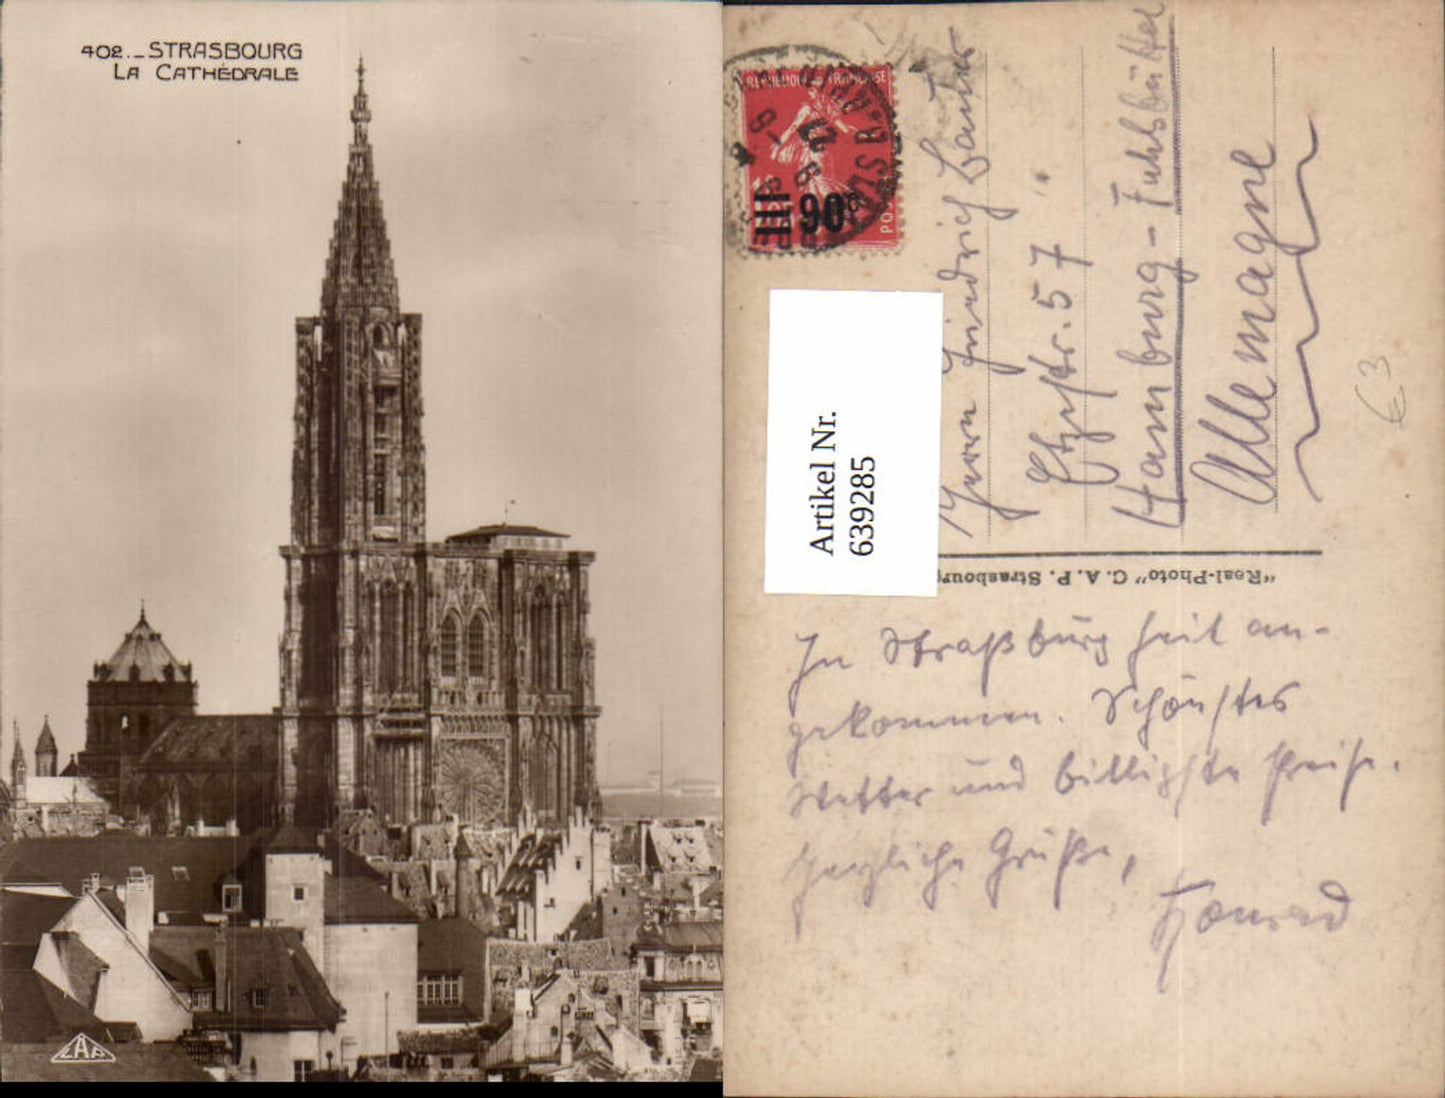 402._STRASBOURG
LA CATHÉDRALE
CAP
REPUBLIQUE FRANÇAISE
90c
Artikel Nr.
639285
Herrn Heinrich
str. 57
Hamburg-Fuhlsbüttel
Allemagne
€3
"Real-Photo" C. A. P. Strasbourg
In Straßburg heil an-
gekommen. Schönstes
Wetter und billigste Preise.
Herzliche Grüße,
Konrad